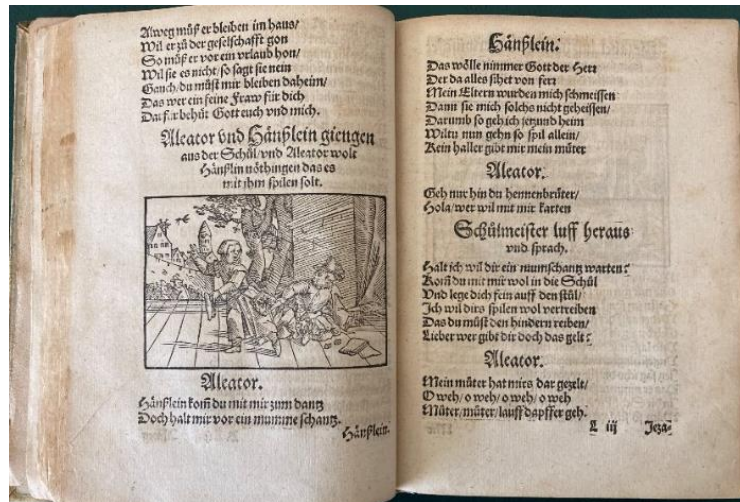 Alweg müß er bleiben im haus/
Wil er zů der geselschafft gon
So müß er vor ein vrlaub hon/
Wil sie es nicht/ so sagt sie nein
Gauch/ du müst mir bleiben daheim/
Das wer ein feine Fraw für dich
Darfür behüt Gott euch vnd mich.
Aleator vnd Hänßlein giengen
aus der Schůl/ vnd Aleator wolt
Hänßlin nöthingen das es
mit jhm spilen solt.
Aleator.
Hänßlein kom̃ du mit mir zum dantz
Doch halt mir vor ein mumme schantz.
Hänßlein.
Hänßlein.
Das wölle nimmer Gott der Herr
Der da alles sihet von ferr
Mein Eltern wurden mich schmeissen
Dann sie mich solchs nicht geheissen/
Darumb so geh ich jezund heim
Wiltu nun gehn so spil allein/
Kein haller gibt mir mein můter
Aleator.
Geh nur hin du hennenbrůter/
Hola/ wer wil mit mir karten
Schůlmeister luff heraus
vnd sprach.
Halt ich wil dir ein mumschantz warten:
Kom̃ du mit mir wol in die Schůl
Vnd lege dich fein auff den stůl/
Ich wil dirs spilen wol vertreiben
Das du můst den hindern reiben/
Lieber wer gibt dir doch das gelt:
Aleator.
Mein můter hat mirs dar gezelt/
O weh/ o weh/ o weh/ o weh
Můter/ můter/ lauff dapffer geh.
L iij Jeza-